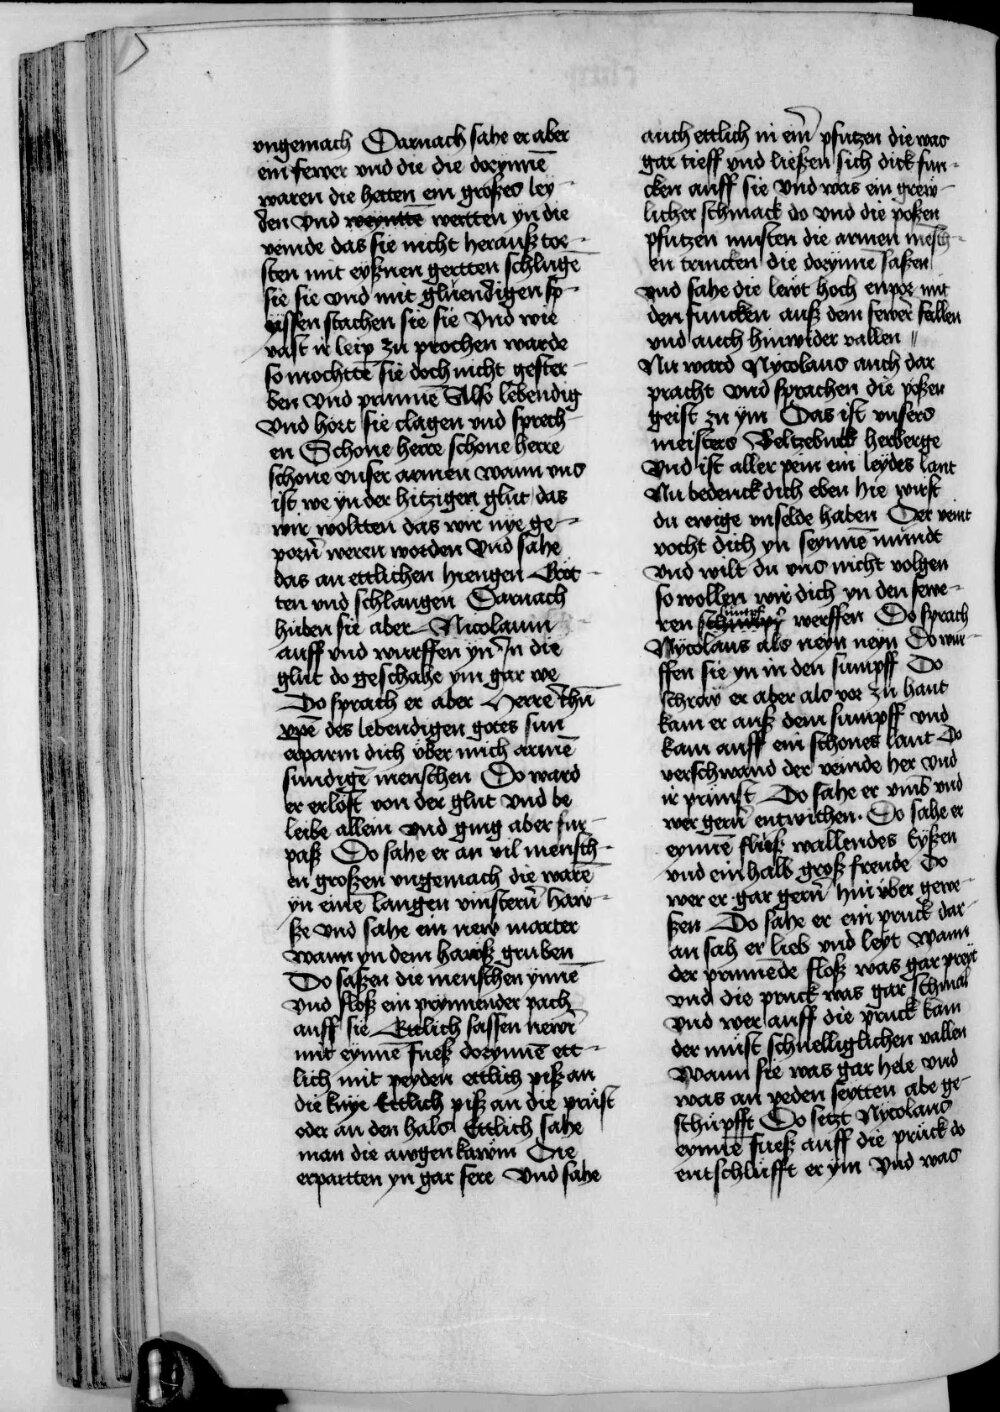 vngemach Darnach sahe er aber
ein fewer vnd die die dorynnē
waren die hetten ein großes ley-
den vnd weyntte wertten yn die
veinde das sie nicht herauß tor-
sten mit eyßnen gertten schluge
sie sie vnd mit gluendigen sp-
yssen stachen sie sie Vnd wie
vast ir leip zu prochen warde
so mochtē sie doch nicht gester-
ben vnd prannē Also lebendig
vnd hort sie clagen vnd sprech-
en Schone herre schone herre
schone vnser armen wann vns
ist we yn der hitzigen glut das
wir woltten das wir nye ge-
porn̄ weren worden Vnd sahe
das an ettlichen hiengen Crot-
ten vnd schlangen Darnach
huben sie aber Nicolaum
auff vnd wurffen yn In die
glut do geschahe ym gar we
Do sprach er aber Herre ihū
xpē des lebendigen gotes sun
erparm dich vber mich armē
sundigē menschen Do ward
er erlost von der glut vnd be
leibe allein vnd ging aber fur-
paß Do sahe er an vil mensch-
en großen vngemach die warē
yn eine langen vinstern̄ haw-
ße vnd sahe ein new marter
wann yn dem hawß gruben
Do saßen die menschen ynnē
vnd floß ein prynnender pach
auff sie Ettlich sassen newr̄
mit eynnē fueß dorynnē ett-
lich mit peyden ettlich piß an
die knye Ettlich piß an die prust
oder an den hals Ettlich sahe
man die awgen kawm Die
erpartten yn gar sere Vnd sahe
auch ettlich in eim̄ pfutzen die was
gar tieff vnd ließen sich dick fun-
cken auff sie Vnd was ein grew-
licher schmack do vnd die poßen
pfutzen musten die armen mesch-
en trincken die dorynne saßen
vnd sahe die lewt hoch enpor mit
den funcken auß dem fewer fallen
vnd auch hinwider vallen
Nu ward Nycolaus auch dar
pracht vnd sprachen die poßen
geist zu ym Das ist vnsers
meisters Beltzebuck herberge
Vnd ist aller pein ein leydes lant
Nu bedenck dich eben hie wirst
du ewige vnselde haben Der veint
vocht dich yn seynnē mundt
Vnd wilt du vns nicht volgen
so wollen wir dich yn den fewe-
ren sumpf werffen Do sprach
Nycolaus als neyn neyn Do wur-
ffen sie yn in den sumpff Do
schray er aber als vor zu hant
kam er auß dem sumpff vnd
kam auff ein schones lant Do
verschwand der veinde her vnd
ir prunst Do sahe er vmb vnd
wer gern̄ entwichen. Do sahe er
eynnē fluß wallendes Eyßen
vnd einhalb groß freude Do
wer er gar gern̄ hin vber gewe-
ßen Do sahe er ein pruck dar-
an sah er lieb vnd leyt wann
der prinnēde floß was gar preyt
vnd die pruck was gar schmal
Vnd wer auff die pruck kam
der must schnelliglichen vallen
Wann sie was gar hele vnd
was an peden seytten abe ge-
schupfft Do setzt Nycolaus
eynnē fueß auff die pruck do
entschlifft er ym Vnd was